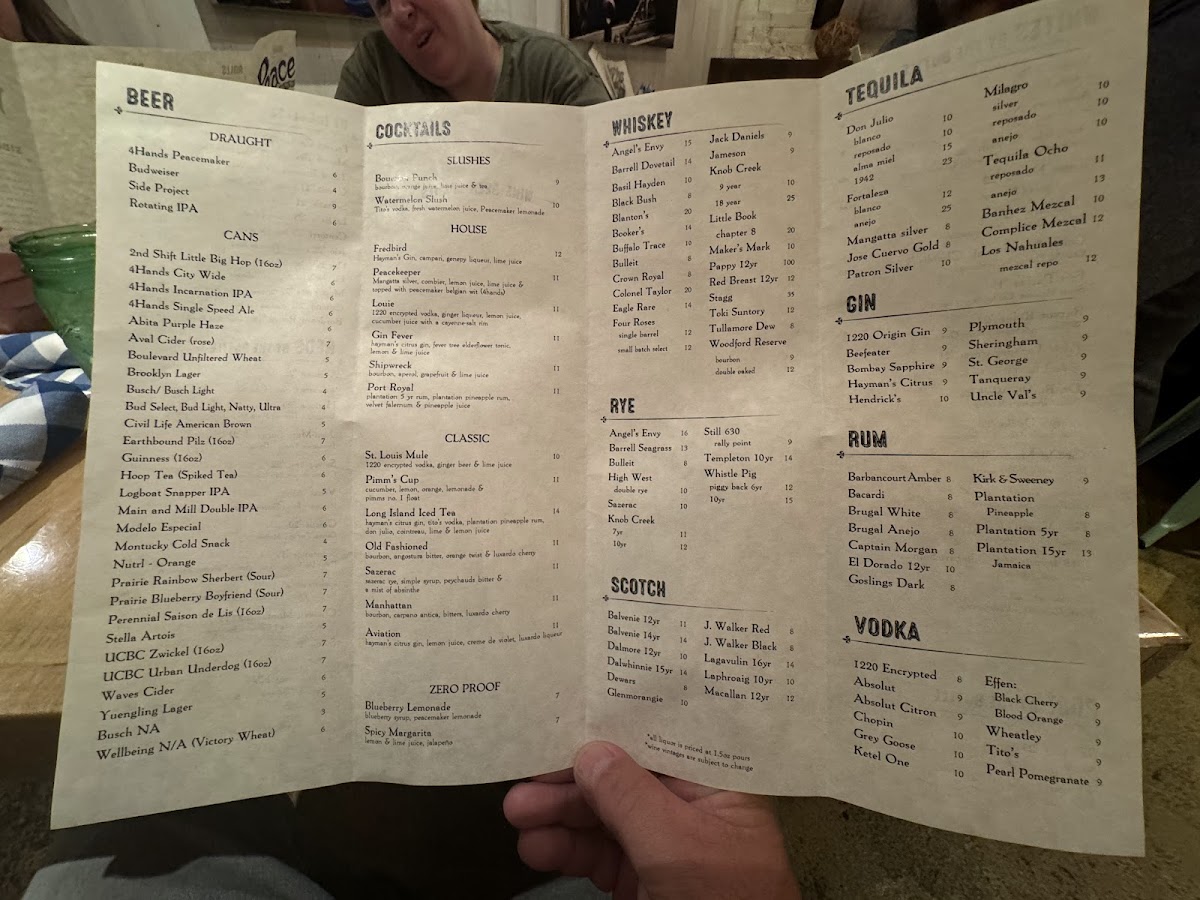 BEER
DRAUGHT
4Hands Peacemaker 6
Budweiser 4
Side Project 9
Rotating IPA 6
CANS
2nd Shift Little Big Hop (16oz) 7
4Hands City Wide 6
4Hands Incarnation IPA 6
4Hands Single Speed Ale 6
Abita Purple Haze 6
Aval Cider (rose) 7
Boulevard Unfiltered Wheat 5
Brooklyn Lager 5
Busch/ Busch Light 4
Bud Select, Bud Light, Natty, Ultra 4
Civil Life American Brown 5
Earthbound Pilz (16oz) 7
Guinness (16oz) 6
Hoop Tea (Spiked Tea) 6
Logboat Snapper IPA 5
Main and Mill Double IPA 6
Modelo Especial 6
Montucky Cold Snack 4
Nutrl - Orange 5
Prairie Rainbow Sherbert (Sour) 7
Prairie Blueberry Boyfriend (Sour) 7
Perennial Saison de Lis (16oz) 7
Stella Artois 5
UCBC Zwickel (16oz) 7
UCBC Urban Underdog (16oz) 7
Waves Cider 6
Yuengling Lager 5
Busch NA 5
Wellbeing N/A (Victory Wheat) 6
COCKTAILS
SLUSHES
Bourbon Punch 9
bourbon, orange juice, lime juice & tea
Watermelon Slush 10
Tito's vodka, fresh watermelon juice, Peacemaker lemonade
HOUSE
Fredbird 12
Hayman's Gin, campari, genepy liqueur, lime juice
Peacekeeper 11
Mangatta silver, combier, lemon juice, lime juice &
topped with peacemaker belgian wit (4hands)
Louie 11
1220 encrypted vodka, ginger liqueur, lemon juice,
cucumber juice with a cayenne-salt rim
Gin Fever 11
hayman's citrus gin, fever tree elderflower tonic,
lemon & lime juice
Shipwreck 11
bourbon, aperol, grapefruit & lime juice
Port Royal 11
plantation 5 yr rum, plantation pineapple rum,
velvet falernum & pineapple juice
CLASSIC
St. Louis Mule 10
1220 encrypted vodka, ginger beer & lime juice
Pimm's Cup 11
cucumber, lemon, orange, lemonade &
pimms no. 1 float
Long Island Iced Tea 14
hayman's citrus gin, tito's vodka, plantation pineapple rum,
don julio, cointreau, lime & lemon juice
Old Fashioned 11
bourbon, angostura bitter, orange twist & luxardo cherry
Sazerac 11
sazerac rye, simple syrup, peychauds bitter &
a mist of absinthe
Manhattan 11
bourbon, carpano antica, bitters, luxardo cherry
Aviation 11
hayman's citrus gin, lemon juice, creme de violet, luxardo liqueur
ZERO PROOF
Blueberry Lemonade 7
blueberry syrup, peacemaker lemonade
Spicy Margarita 7
lemon & lime juice, jalapeño
WHISKEY
Angel's Envy 15
Barrell Dovetail 14
Basil Hayden 10
Black Bush 8
Blanton's 20
Booker's 14
Buffalo Trace 10
Bulleit 8
Crown Royal 8
Colonel Taylor 20
Eagle Rare 14
Four Roses
single barrel 12
small batch select 12
Jack Daniels 9
Jameson 9
Knob Creek
9 year 10
18 year 25
Little Book
chapter 8 20
Maker's Mark 10
Pappy 12yr 100
Red Breast 12yr 12
Stagg 35
Toki Suntory 12
Tullamore Dew 8
Woodford Reserve
bourbon 9
double oaked 12
RYE
Angel's Envy 16
Barrell Seagrass 13
Bulleit 8
High West
double rye 10
Sazerac 10
Knob Creek
7yr 11
10yr 12
Still 630
rally point 9
Templeton 10yr 14
Whistle Pig
piggy back 6yr 12
10yr 15
SCOTCH
Balvenie 12yr 11
Balvenie 14yr 14
Dalmore 12yr 10
Dalwhinnie 15yr 14
Dewars 8
Glenmorangie 10
J. Walker Red 8
J. Walker Black 8
Lagavulin 16yr 14
Laphroaig 10yr 10
Macallan 12yr 12
*all liquor is priced at 1.5oz pours
*wine vintages are subject to change
TEQUILA
Don Julio
blanco 10
reposado 10
alma miel 15
1942 23
Fortaleza
blanco 12
anejo 25
Mangatta silver 8
Jose Cuervo Gold 8
Patron Silver 10
Milagro
silver 10
reposado 10
anejo 10
Tequila Ocho
reposado 11
anejo 13
Banhez Mezcal 10
Complice Mezcal 12
Los Nahuales
mezcal repo 12
GIN
1220 Origin Gin 9
Beefeater 9
Bombay Sapphire 9
Hayman's Citrus 9
Hendrick's 10
Plymouth 9
Sheringham 9
St. George 9
Tanqueray 9
Uncle Val's 9
RUM
Barbancourt Amber 8
Bacardi 8
Brugal White 8
Brugal Anejo 8
Captain Morgan 8
El Dorado 12yr 10
Goslings Dark 8
Kirk & Sweeney 9
Plantation
Pineapple 8
Plantation 5yr 8
Plantation 15yr 13
Jamaica
VODKA
1220 Encrypted 8
Absolut 9
Absolut Citron 9
Chopin 10
Grey Goose 10
Ketel One 10
Effen:
Black Cherry 9
Blood Orange 9
Wheatley 9
Tito's 9
Pearl Pomegranate 9